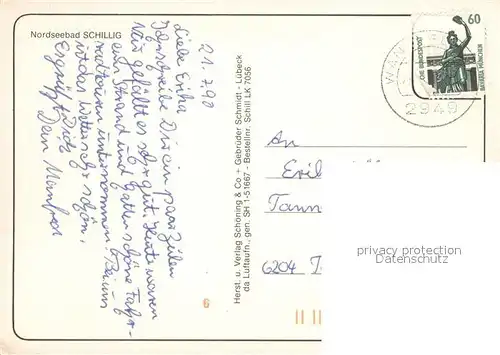 Nordseebad SCHILLIG
21.7.90
Liebe Erika
Ich schreibe Dir ein paar Zeilen
gefällt es sehr gut. Heute waren
am Strand und haben schöne Fahr-
radtouren unternommen. Bei uns
ist das Wetter sehr schön.
Es grüßt Dich
Dein Manfred
Herst. u. Verlag Schöning & Co + Gebrüder Schmidt - Lübeck
da Luftaufn., gen. SH 1-51667 - Bestellnr. Schill LK 7056
6
60
DEUTSCHE BUNDESPOST
BAVARIA MÜNCHEN
WAN
2949
An
Erik
Tann
6204 T
privacy protection
Datenschutz